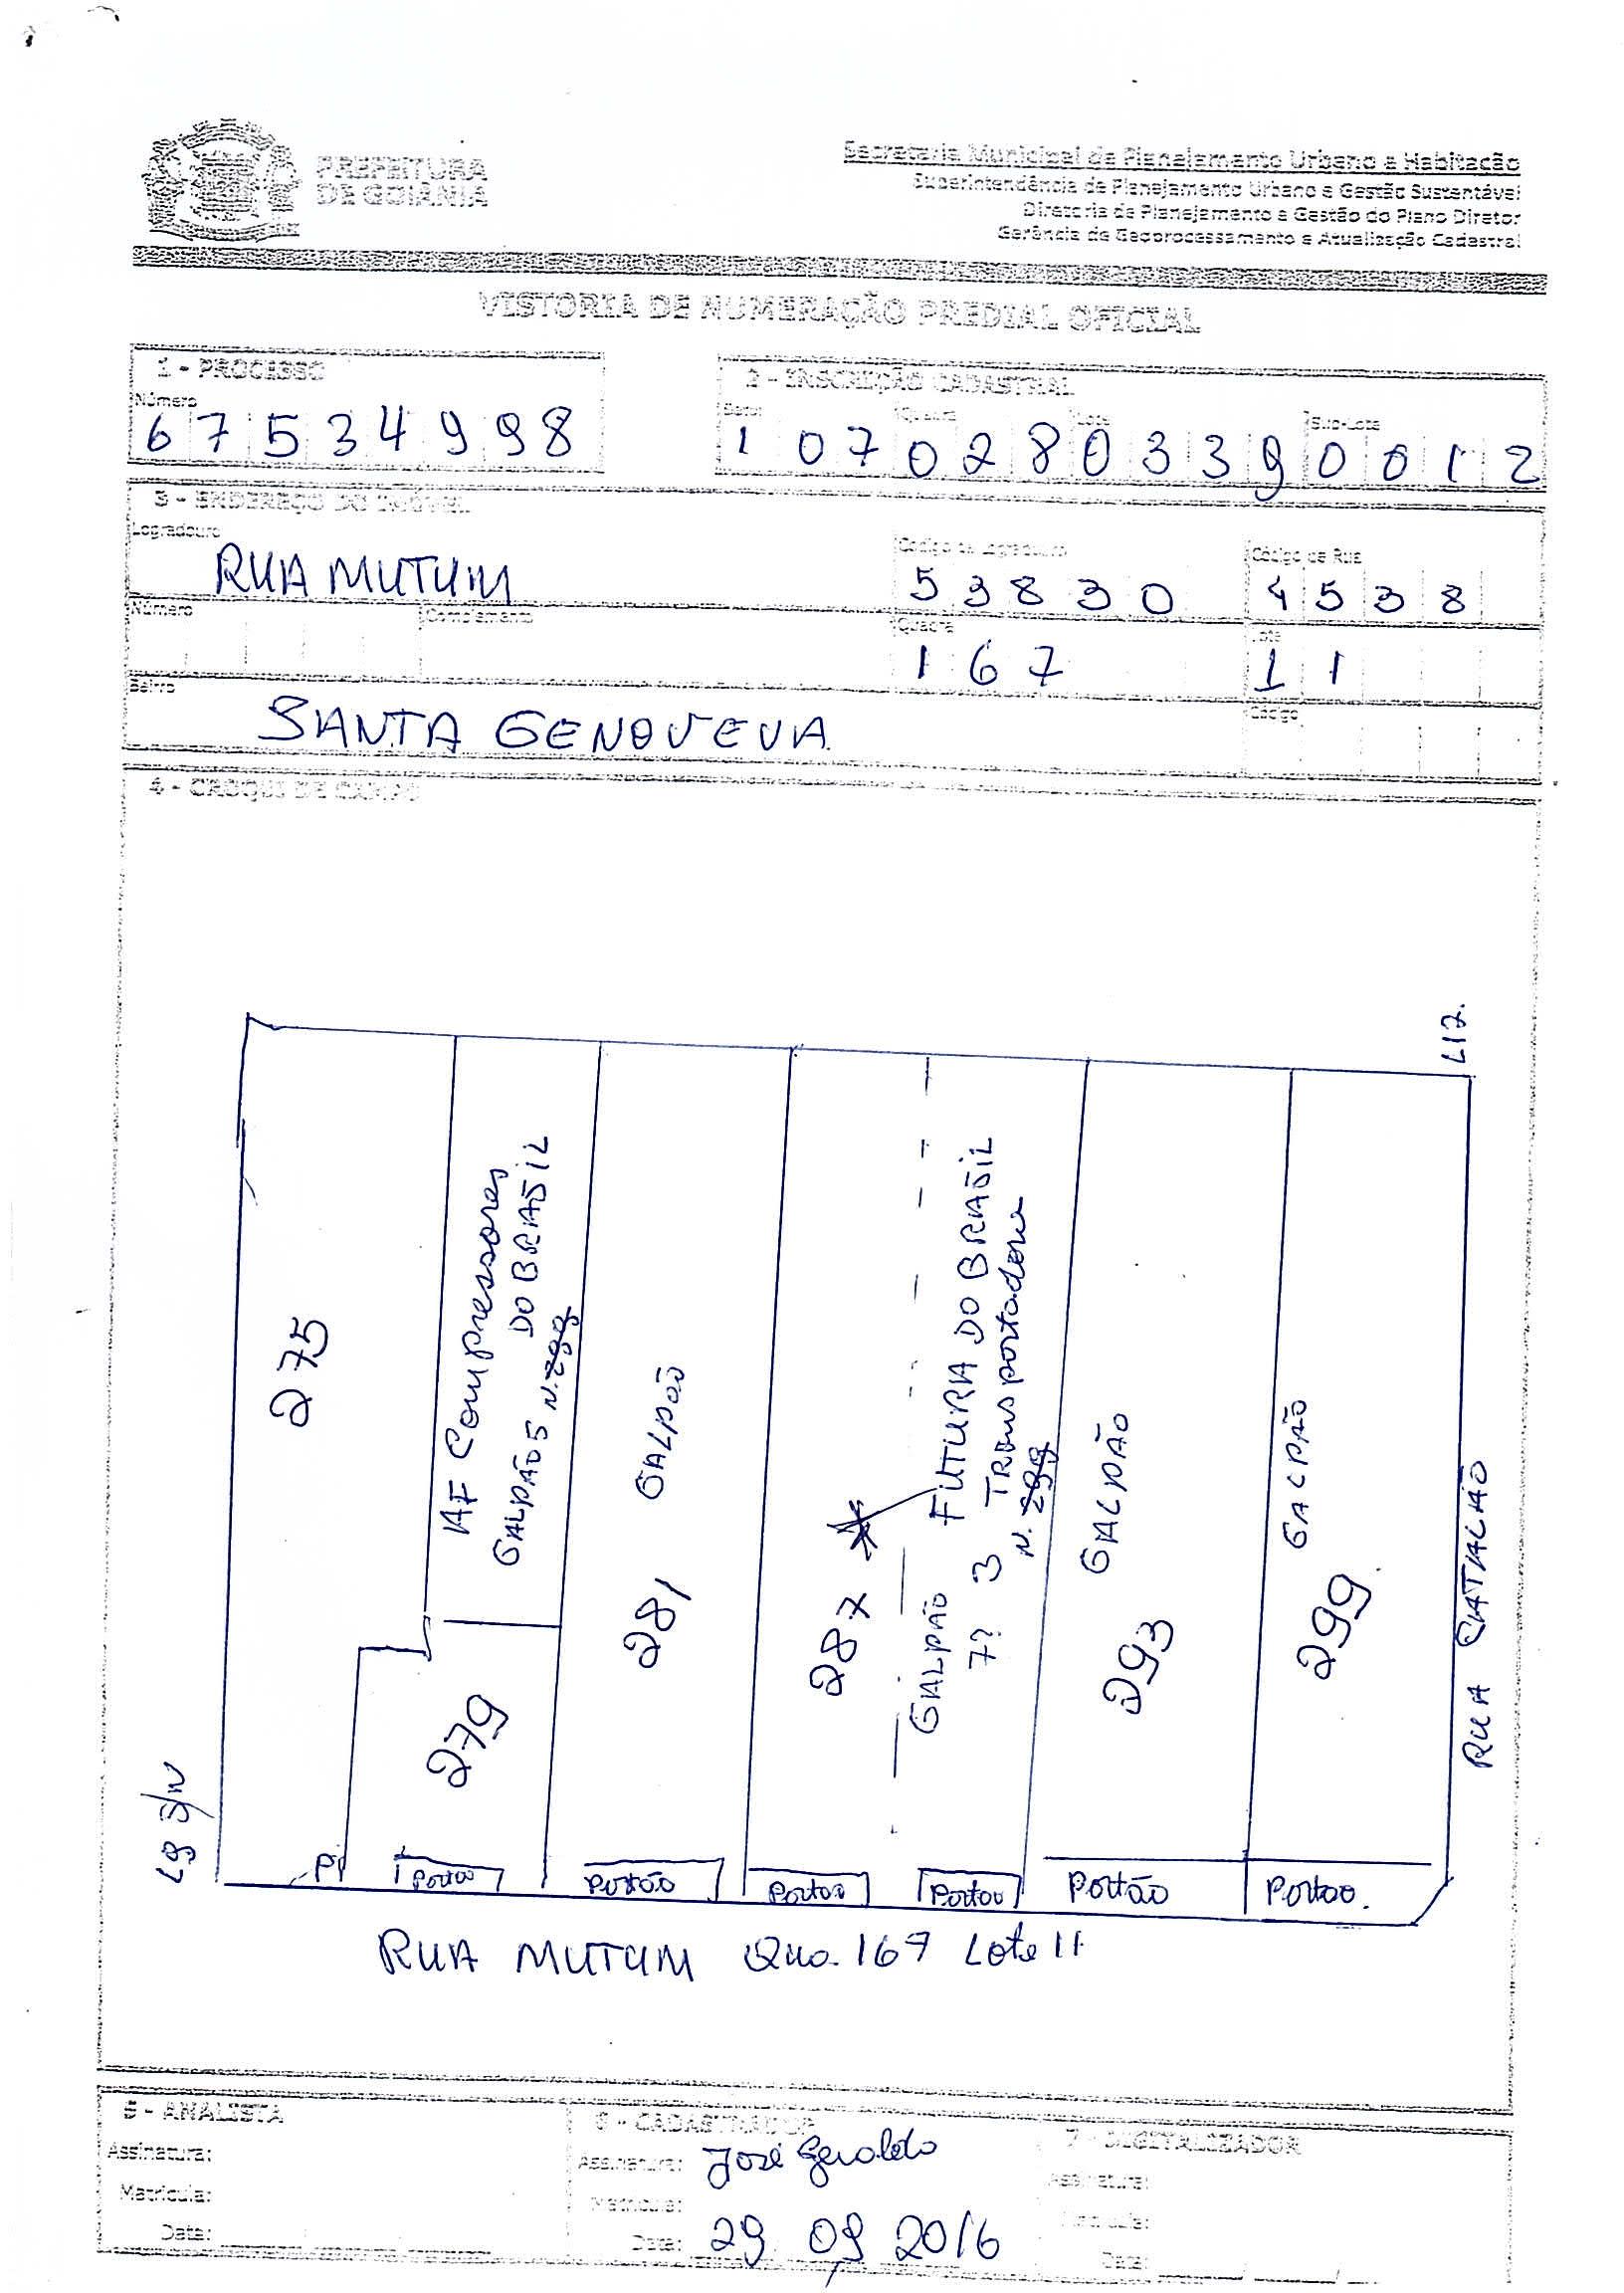 PREFEITURA
DE GOIÂNIA
Secretaria Municipal de Planejamento Urbano e Habitação
Superintendência de Planejamento Urbano e Gestão Sustentável
Diretoria de Planejamento e Gestão do Plano Diretor
Gerência de Geoprocessamento e Atualização Cadastral
VISTORIA DE NUMERAÇÃO PREDIAL OFICIAL
1 - PROCESSO
Número
6 7 5 3 4 9 9 8
2 - INSCRIÇÃO CADASTRAL
Setor Quadra Lote Sub-Lote
1 0 7 0 2 8 0 3 3 9 0 0 1 2
3 - ENDEREÇO DO IMÓVEL
Logradouro
RUA MUTUM
Código de Logradouro
5 3 8 3 0
Código da Rua
4 5 3 8
Número
Complemento
Quadra
1 6 7
Lote
1 1
Bairro
SANTA GENOVEVA
Código
4 - CROQUI DE CAMPO
L12.
275
AF Compressores
DO BRASIL
GALPÃO 5 N.
279
GALPÃO
281
287
FUTURA DO BRASIL
Transportadora
N.
GALPÃO
7? 3
GALPÃO
293
GALPÃO
299
RUA CATALÃO
L9 S/N
P
Portão
Portão
Portão
Portão
Portão
Portão.
RUA MUTUM Qua. 167 Lote 11
5 - ANALISTA
Assinatura:
Matrícula:
Data:
6 - CADASTRADOR
Assinatura: José Geraldo
Matrícula:
Data: 29 09 2016
7 - DIGITALIZADOR
Assinatura:
Matrícula:
Data: